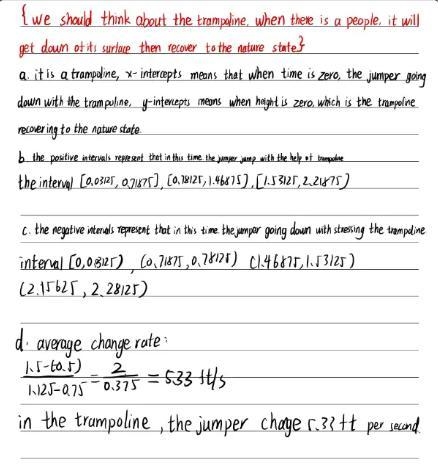 {we should think about the trampoline, when there is a people, it will
get down of its surface then recover to the nature state}
a. it is a trampoline, x-intercepts means that when time is zero, the jumper going
down with the trampoline, y-intercepts means when height is zero, which is the trampoline
recovering to the nature state.
b. the positive intervals represent that in this time the jumper jump with the help of trampoline
the interval [0.03125, 0.71875], [0.78125, 1.46875], [1.53125, 2.21875)
c. the negative intervals represent that in this time the jumper going down with stressing the trampoline
interval [0,003125), (0.71875, 0.78125) (1.46875, 1.53125)
(2.15625, 2.28125)
d. average change rate:
1.5-(-0.5) / 1.125-0.75 = 2 / 0.375 = 5.33 ft/s
in the trampoline, the jumper chage 5.33 ft per second